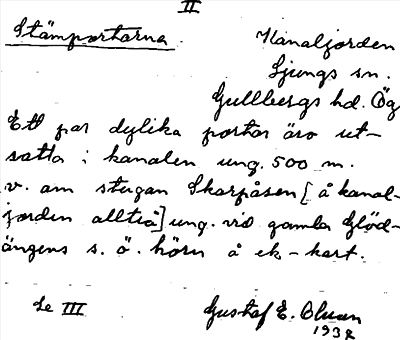 II
Stämportarna. Kanaljorden
Ljungs sn.
Gullbergs hd. Ög
Ett par dylika portar äro ut-
satta i kanalen ung. 500 m.
v. om stugan Skarpåsen [å kanal-
jorden alltså] ung. vid gamla Glöd-
ängens s. ö. hörn å ek-kart.
Se III Gustaf E. Olsson
1932